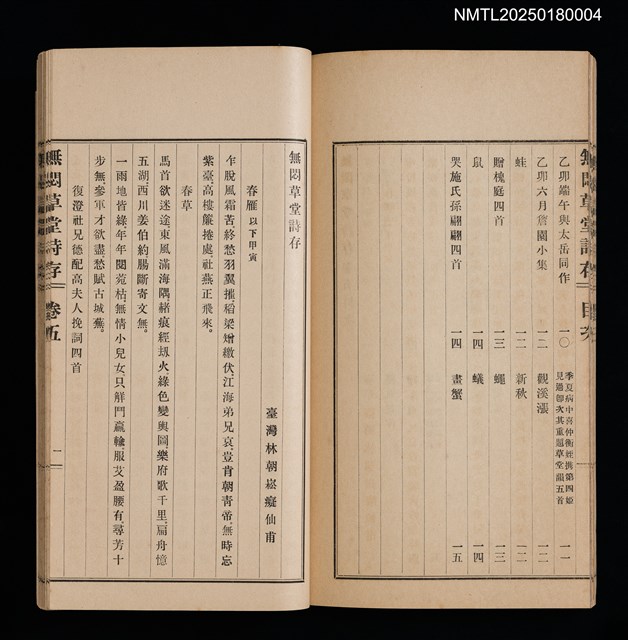 NMTL20250180004
乙卯端午與太岳同作 一〇 季夏病中喜仲衡姪携第四姬
見過卽次其重題草堂韻五首 一一
乙卯六月詹園小集 一二 觀溪漲 一二
蛙 一二 新秋 一二
贈槐庭四首 一三 蠅 一三
鼠 一四 蟻 一四
哭施氏孫翩翩四首 一四 畫蟹 一五
無悶草堂詩存 目次
無悶草堂詩存
臺灣林朝崧癡仙甫
春雁 以下甲寅
乍脫風霜苦終愁羽翼摧稻粱矰繳伏江海弟兄哀豈肯朝靑帝無時忘
紫臺高樓簾捲處社燕正飛來
春草
馬首欲迷途東風滿海隅赭痕經刼火綠色變輿圖樂府歌千里扁舟憶
五湖西川姜伯約腸斷寄文無
一雨地皆綠年年閱菀枯無情小兒女只解鬥贏輸服艾盈腰有尋芳十
步無參軍才欲盡愁賦古城蕪
復澄社兄德配高夫人挽詞四首
無悶草堂詩存 卷五 一